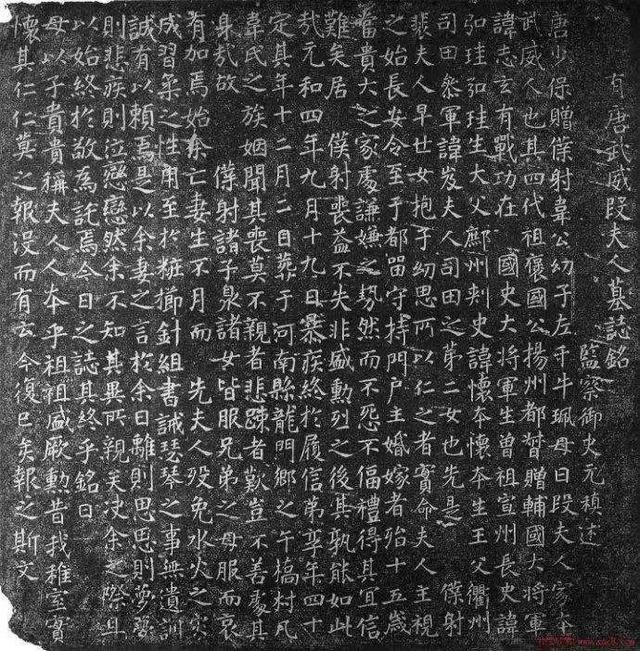 有唐武威段夫人墓誌銘
監察御史元稹述
唐少保贈僕射韋公幼子左千牛珮母曰段夫人家本
武威人也其四代祖褒國公揚州都督贈輔國大將軍
諱志玄有戰功在 國史大將軍生曾祖宣州長史諱
弘珪弘珪生大父鄜州刺史諱懷本懷本生王父衢州
司田叅軍諱岌夫人司田之第二女也先是 僕射
裴夫人早世女抱子幼思所以仁之者實命夫人主視
之始長安令至于都留守持門戶主婚嫁者殆十五歲
當貴大之家處謙嫌之勢然而不怨不偪禮得其宜信
難矣居 僕射喪益不失非盛勳烈之後其孰能如此
哉元和四年九月十九日暴疾終於履信第享年四十
定其年十二月二日葬于河南縣龍門鄉之午橋村凡
韋氏之族姻聞其喪莫不親者悲疎者歎豈不善處其
身哉故 僕射諸子泉諸女皆服兄弟之母服而哀
有加焉始余亡妻生不月而 先夫人歿免水火之災
成習柔之性用至於粧櫛針組書誡瑟琴之事無遺訓
誠有以賴焉是以余妻之言於余曰離則思思則夢惡
則悲疾則泣戀戀然余不知其異所親矣決余之際且
以始終於敬焉託焉今日之誌其終乎銘曰
母以子貴貴稱夫人人本乎祖祖盛厥勲昔我稚室實
懷其仁仁莫之報沒而有云今復已矣報之斯文